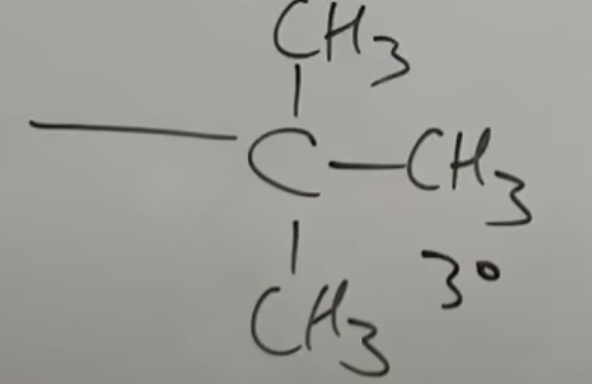 CH3
C—CH3
3°
CH3